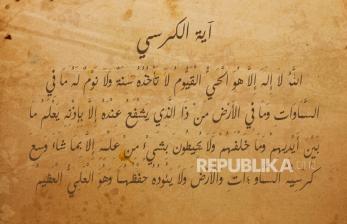 آية الكرسي
اللَّهُ لَا إِلَهَ إِلَّا هُوَ الْحَيُّ الْقَيُّومُ لَا تَأْخُذُهُ سِنَةٌ وَلَا نَوْمٌ لَهُ مَا فِي
السَّمَاوَاتِ وَمَا فِي الْأَرْضِ مَن ذَا الَّذِي يَشْفَعُ عِنْدَهُ إِلَّا بِإِذْنِهِ يَعْلَمُ مَا
بَيْنَ أَيْدِيهِمْ وَمَا خَلْفَهُمْ وَلَا يُحِيطُونَ بِشَيْءٍ مِنْ عِلْمِهِ إِلَّا بِمَا شَاءَ وَسِعَ
REPUBLIKA
كُرْسِيُّهُ وَالْأَرْضَ وَلَا يَئُودُهُ حِفْظُهُمَا وَهُوَ الْعَلِيُّ الْعَظِيمُ